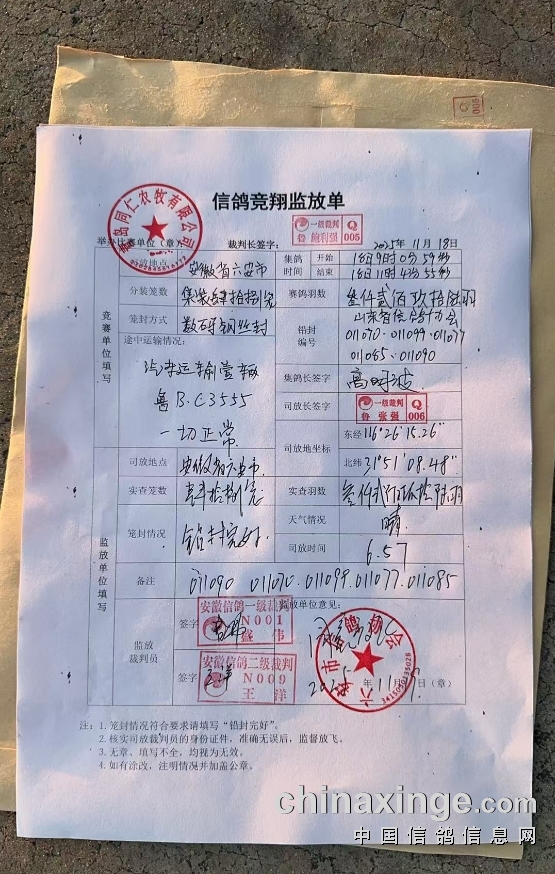 Q
005
信鸽竞翔监放单
青岛同仁农牧有限公司
一级裁判
鲁 鲍利强
Q
005
举办比赛单位(章)
裁判长签字:
2025年11月18日
放地点
安徽省六安市
集鸽时间
开始
结束
16日11时43分55秒
分装笼数
集装肆拾捌笼
赛鸽羽数
叁仟贰佰玖拾陆羽
笼封方式
数码号钢丝封
铅封编号
山东省信鸽协会
011070.011099.011077
011085.011090
竞赛单位填写
途中运输情况:
汽车运输壹辆
B.C3555
一切正常
集鸽长签字
司放长签字
一级裁判
鲁 张强
Q
006
司放地坐标
东经
116°26'15.26"
北纬
31°51'08.48"
监放单位填写
司放地点
安徽省六安市
实查笼数
肆拾捌笼
实查羽数
叁仟贰佰玖拾陆羽
笼封情况
铅封完好
天气情况
晴
司放时间
6.57
备注
011090 011070.011099.011077.011085
监放裁判员
签字
安徽信鸽一级裁判
N001
盛 伟
签字
安徽信鸽二级裁判
N009
王 洋
监放单位意见:
六安市信鸽协会
2025年11月
日(章)
注:1. 笼封情况符合要求请填写“铅封完好”。
2. 核实司放裁判员的身份证件,准确无误后,监督放飞。
3. 无章、填写不全,均视为无效。
4. 如有涂改,注明情况并加盖公章。
chinaxinge.com
中国信鸽信息网